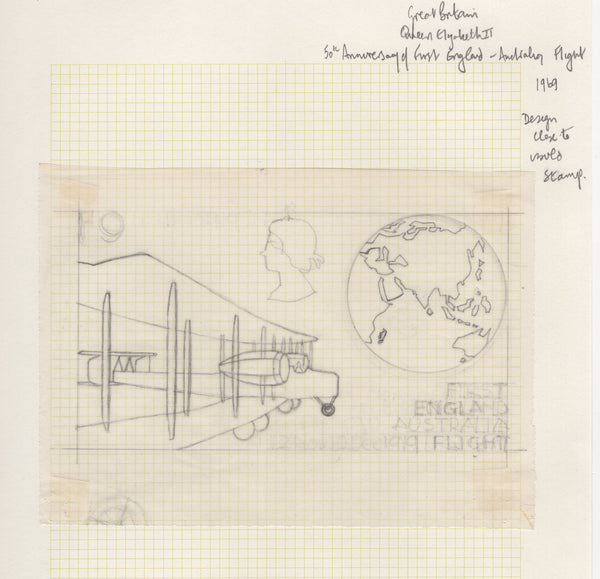 Great Britain
Queen Elizabeth II
50th Anniversary of First England - Australia Flight
1969
Design
close to
issued
stamp.
FIRST
ENGLAND
AUSTRALIA
FLIGHT